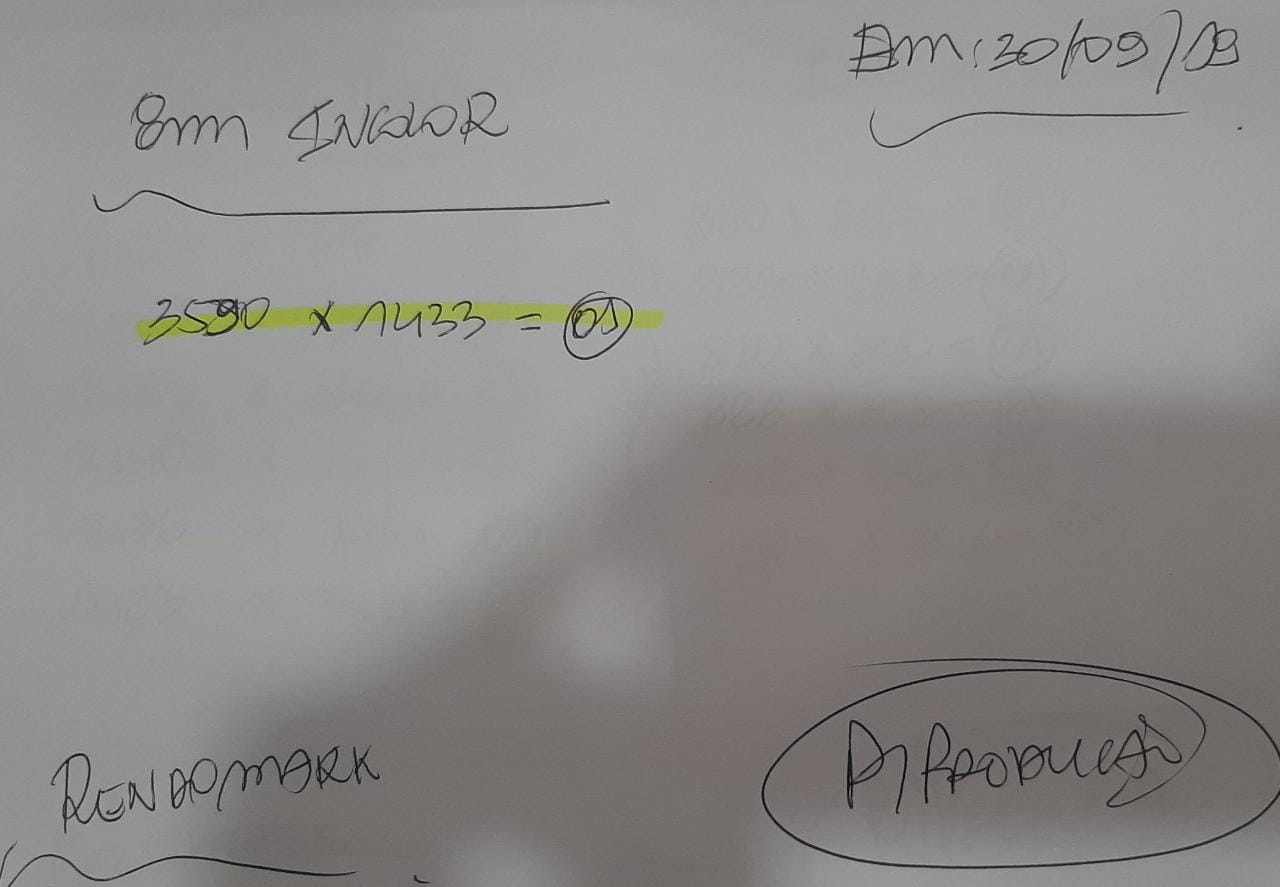 Em: 20/09/19
8mm INCOLOR
3590 x 1433 = 01
RENDOMARK
P/ PRODUÇÃO